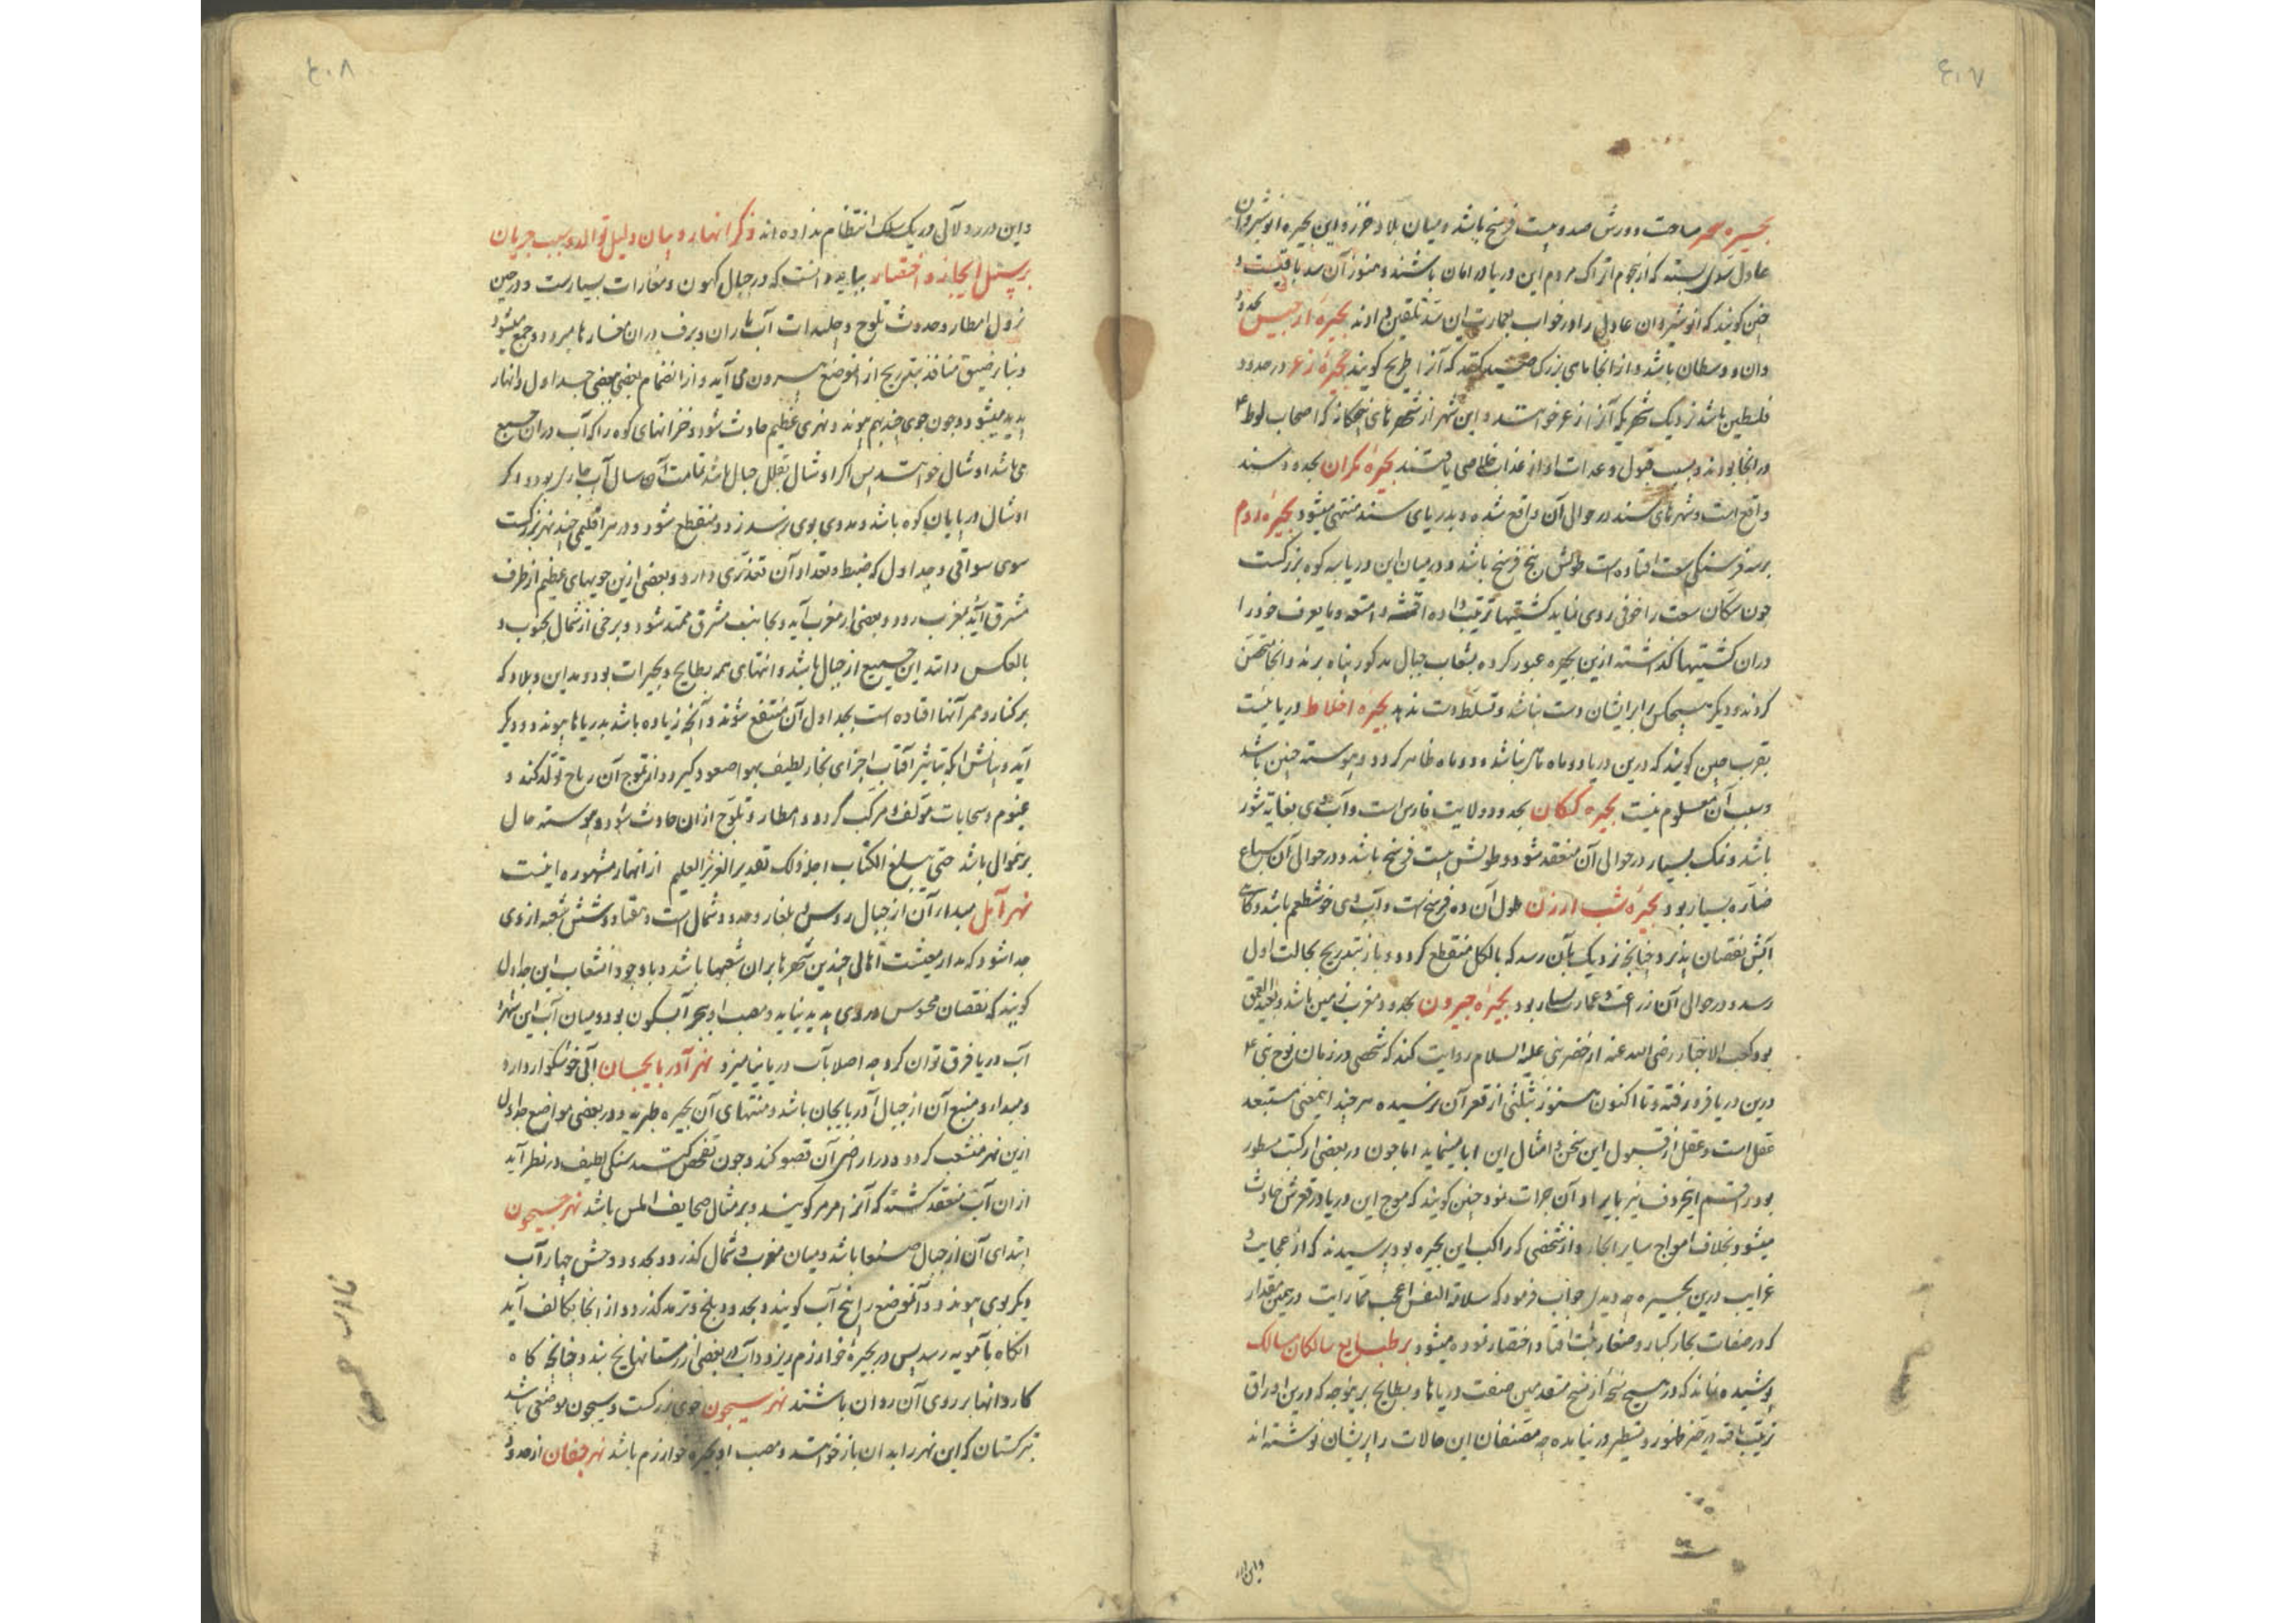 ۴۰۷
بحیره مساحت دورش صد و بیست فرسخ باشد و میان بلاد خزر و این بحیره انوشیروان
عادل سدی بسته که از هجوم اتراک مردم این دریا در امان باشند و هنوز آن سد باقیست و
چنین گویند که انوشیروان عادل را در خواب بعمارت این سد تلقین دادند بحیرهٔ ارجیس بحدود
وان و وسطان باشد و از انجا ماهی بزرک صید کنند که آنرا طریخ گویند بحیرهٔ زعر در حدود
فلسطین باشد نزدیک شهریکه آنرا زعر خوانند و این شهر از شهرهای پنجکانه که اصحاب لوط ع
در انجا بودند و بسبب قبول وعدات او از عذاب خلاصی یافتند بحیرهٔ مکران بحدود سند
واقع است و شهرهای سند در حوالی آن واقع شده و بدریای سند منتهی میشود بحیرهٔ روم
برسه فرسنکی افتاده است طولش پنج فرسخ باشد و در میان این دریا سه کوه بزرکست
چون سکان را خوفی روی نماید کشتیها ترتیب داده اقمشه و امتعه و ما یعرف خود را
دران کشتیها کذاشته ازین بحیره عبور کرده بشعاب جبال مذکور پناه برند و انجا متحصن
کردند و دیکر هیچکس را بر ایشان دست نباشد و تسلط دست ندهد بحیرهٔ اخلاط دریائیست
بقرب چین گویند که درین دریا دو ماه ماهی نباشد و دو ماه ظاهر کردد و پیوسته چنین باشد
و سبب آن معلوم نیست بحیرهٔ کنکان بحدود ولایت فارس است و آب وی بغایة شور
باشد و نمک بسیار در حوالی آن منعقد شود و طولش بیست فرسخ باشد و در حوالی آن سباع
ضاره بسیار بود بحیرهٔ شب ارزن طول آن ده فرسخ است و آب وی خوشطعم باشد و کاهی
آبش نقصان پذیرد چنانچه نزدیک بآن رسد که بالکل منقطع کردد و باز بتدریج بحالت اول
رسد و در حوالی آن زراعت و عمارت بسیار بود بحیرهٔ جیرون بحدود مغرب زمین باشد و بعید العمق
بود کعب الاخبار رضی الله عنه از خضر نبی علیه السلام روایت کند که شخصی در زمان نوح نبی ع
درین دریا فرو رفته و تا اکنون هنوز بثلثی از قعر آن نرسیده هر چند اینمعنی مستبعد
عقل است و عقل از قبول این سخن و امثال این ابا مینماید اما چون در بعضی از کتب مسطور
بود رقم اینحروف نیز بایراد آن جرات نمود چنین گویند که موج این دریا در قعرش حادث
میشود بخلاف امواج سایر ابحار و از شخصی که راکب این بحیره بود پرسیدند که از عجایب و
غرایب درین بحیره چه دیدی جواب فرمود که سلامة النفس اعجب مما رایت درین مقدار
که در صفات بحار کبار و صغار ثبت افتاد اختصار نموده میشود بر طبایع سالکان سالک
پوشیده نماند که در هیچ نسخه از نسخ متقدمین صفت دریاها و بطایح برینوجه که درین اوراق
ترتیب یافته در حیز ظهور و تسطیر در نیامده چه مصنفان این حالات را پریشان نوشته اند
و این درر
۴۰۸
و این درر و لآلی در یک سلک انتظام نداده اند ذکر انهار و بیان دلیل تولد و سبب جریان
بر سبیل ایجاز و اختصار بباید دانست که در جبال کهوف و مغارات بسیارست و در حین
نزول امطار و حدوث ثلوج و جلیدات آب باران و برف دران مغارها میرود و جمع میشود
و بنابر ضیق منافذ بتدریج از انموضع بیرون می آید و از انضمام بعضی ببعضی جداول و انهار
پدید میشود و چون جوی چند بهم پیوندد نهری عظیم حادث شود و خزانهای کوه را که آب دران جمع
می باشد اوشال خوانند پس اکر اوشال بقلل جبال باشد تمامت آن سال آب جاری بود و اکر
اوشال در پایان کوه باشد و مددی بوی نرسد زود منقطع شود و در هر اقلیمی چند نهر بزرکست
سوی سواقی و جداول که ضبط و تعداد آن تعذری دارد و بعضی ازین جویهای عظیم از طرف
مشرق آید بمغرب رود و بعضی از مغرب آید و بجانب مشرق ممتد شود و برخی از شمال بجنوب و
بالعکس و ابتداء این جمیع از جبال باشد و انتهای همه بطایح و بحیرات بود و مداین و بلاد که
بر کنار و ممر آنها افتاده است بجداول آن منتفع شوند و آنچه زیاده باشد بدریاها پیوندد و دیکر
آید و بتابش آنکه بتاثیر آفتاب اجزای بخار لطیف بهوا صعود کیرد و از تموج آن ریاح تولد کند و
غیوم و سحابات مولف و مرکب گردد و امطار و ثلوج از ان حادث شود و پیوسته حال
برینمنوال باشد حتی یبلغ الکتاب اجله ذلک تقدیر العزیز العلیم از انهار مشهوره اینست
نهر آتل مبدا آن از جبال روس و بلغار و حدود شمال است و هفتاد و شش شعبه از وی
جدا شود که مدار معیشت اهالی چندین شهرها بران شعبها باشد و با وجود انشعاب این جداول
کویند که نقصان محسوس در وی پدید نیاید و مصب او بحر آبسکون بود و میان آب این نهر و
آب دریا فرق توان کرد چه اصلا بآب دریا نیامیزد نهر آذربایجان آبی خوشکوار دارد
و مبدا و منبع آن از جبال آذربایجان باشد و منتهای آن بحیرهٔ طبریه و در بعضی مواضع جداول
ازین نهر منشعب کردد و در اراضی آن کند و چون تفحص کنند سنکی لطیف در نظر آید
از ان آب منعقد کشته که آنرا مرمر کویند و بر مثال صحایف املس باشد نهر جیحون
ابتدای آن از جبال صنعا باشد و میان مغرب و شمال کذرد و بحدود وخش چهار آب
دیکر بوی پیوندد و آنموضع را پنج آب کویند و بحدود بلخ و ترمد کذرد و از انجا بکالف آید
انکاه بآمویه رسد پس در بحیرهٔ خوارزم ریزد و آب در بعضی از زمستانها یخ بندد چنانچه کاه
کاروانها بر روی آن روان باشند نهر سیحون جوی بزرکست و سیحون موضعی باشد
بترکستان که این نهر را بدان باز خوانند و مصب او بحیرهٔ خوارزم باشد نهر جغان از حدود